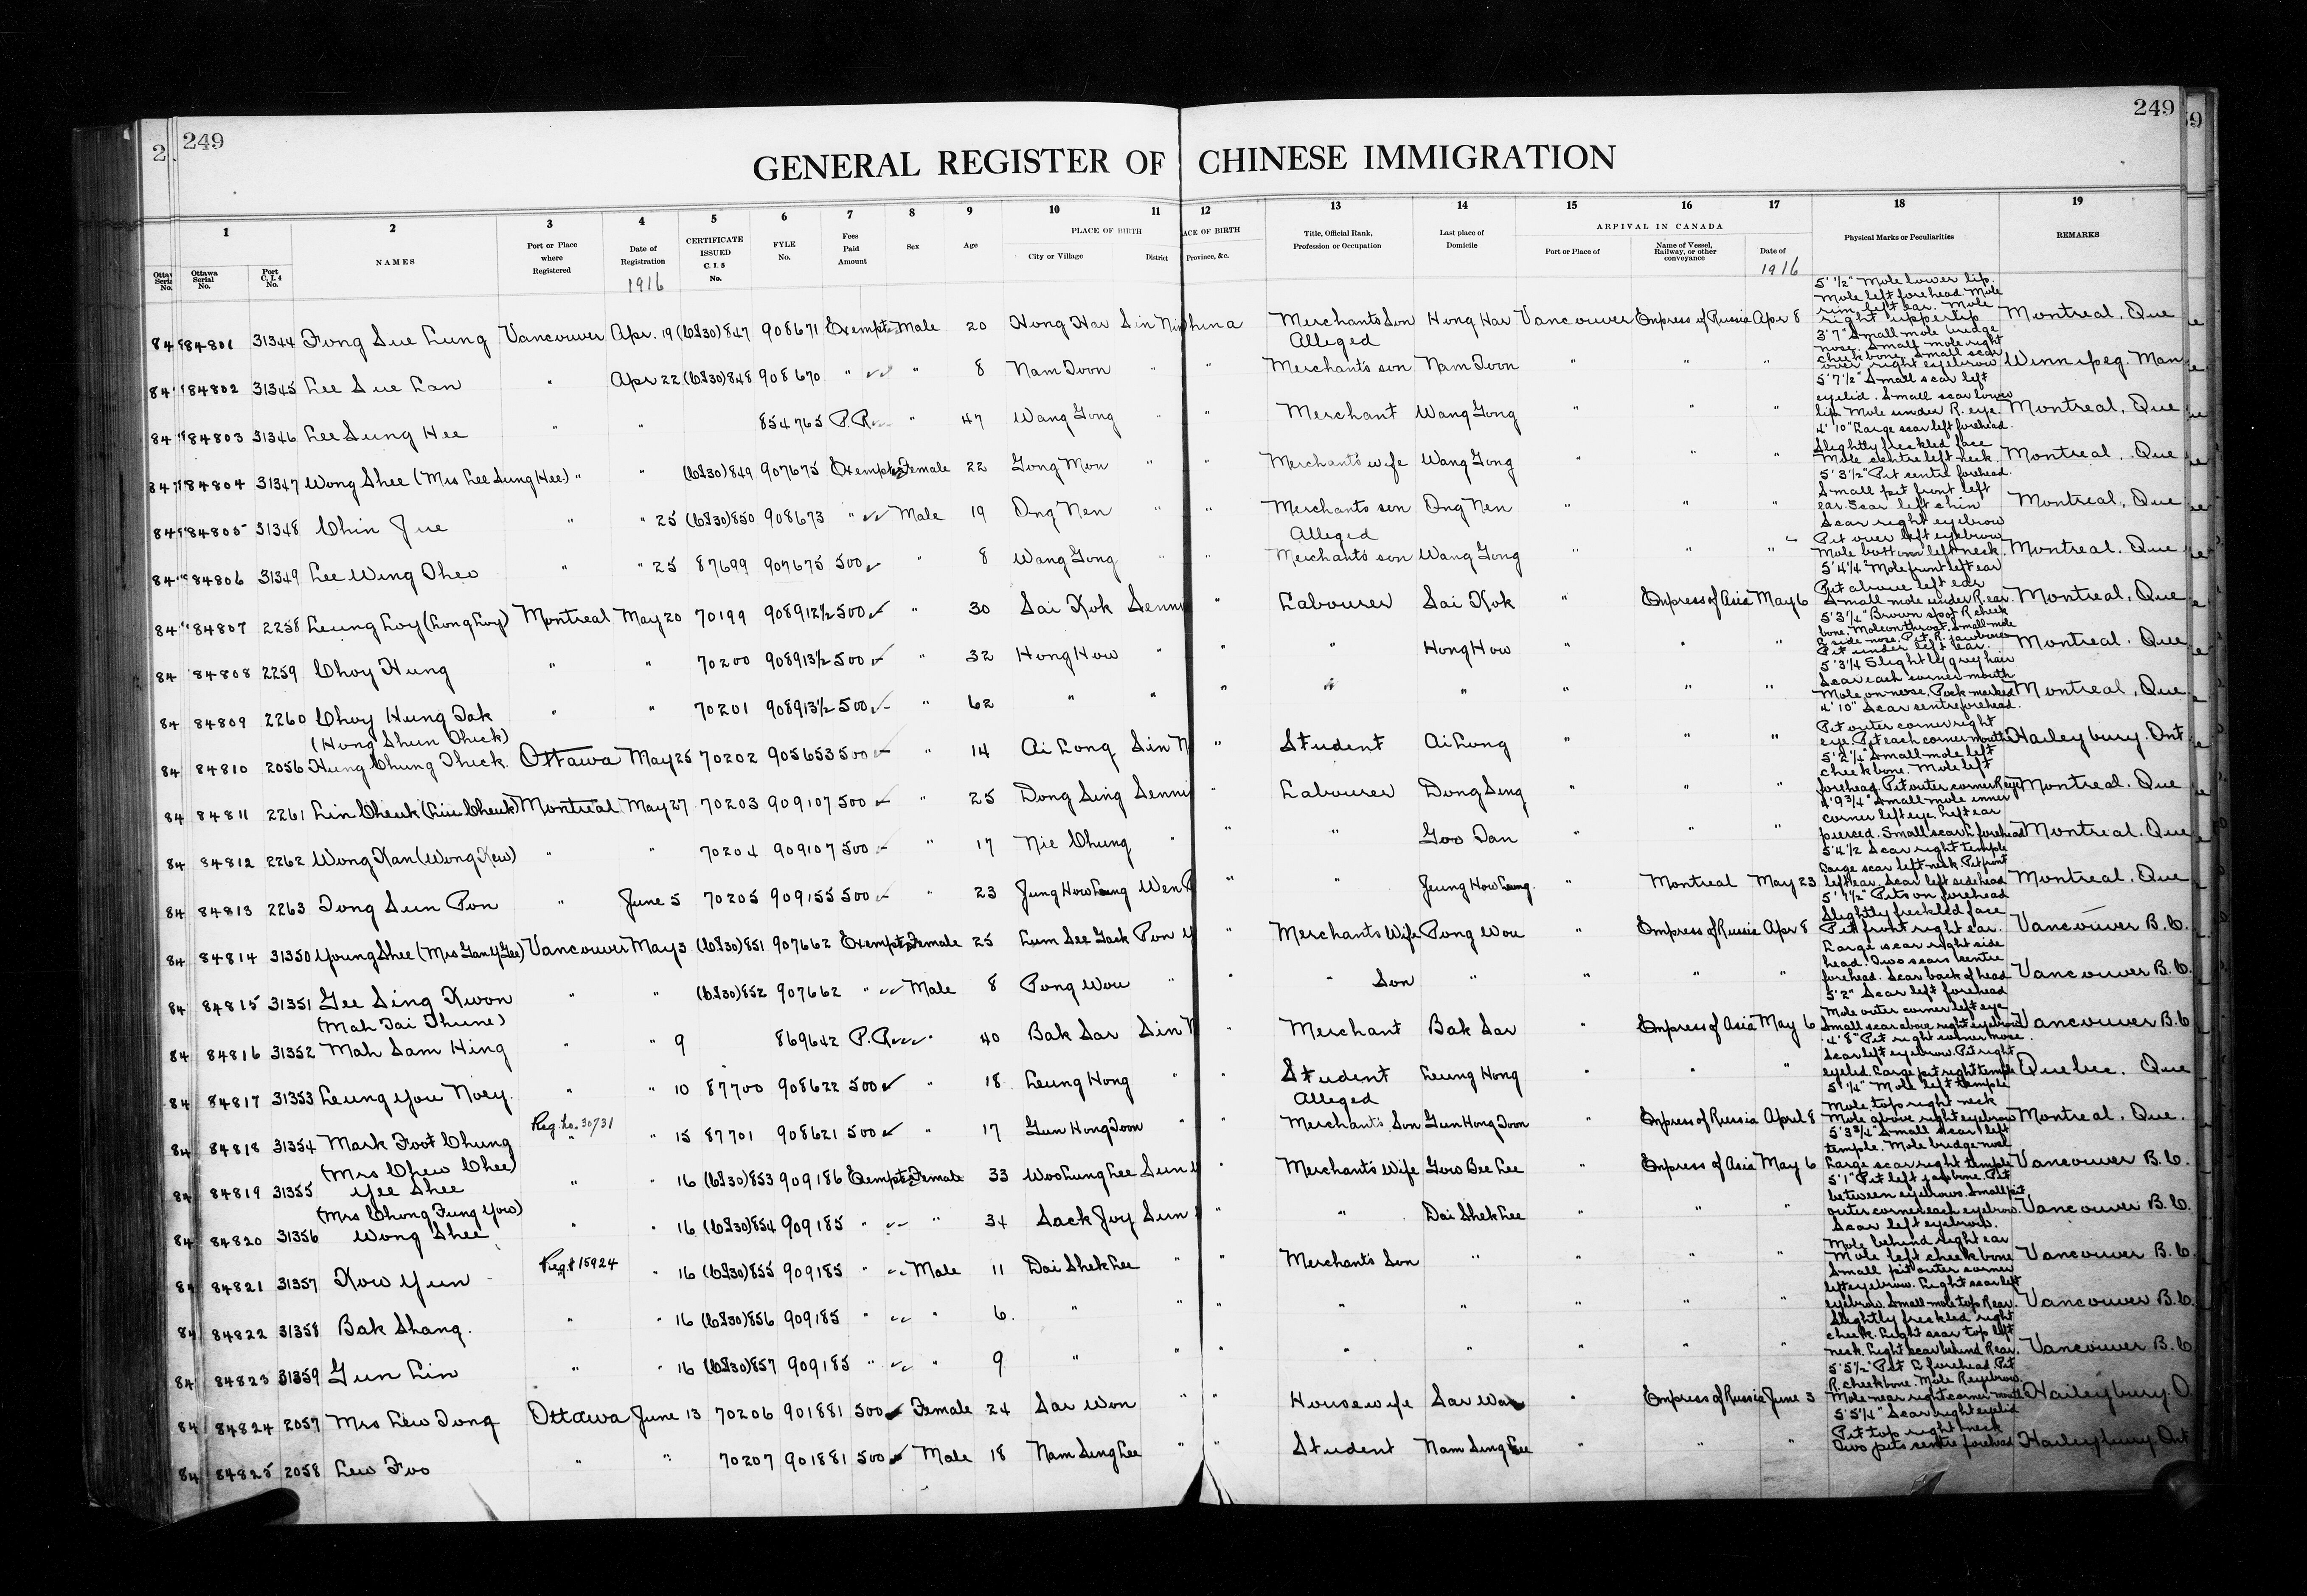 249
249
GENERAL REGISTER OF CHINESE IMMIGRATION
1 2 3 4 5 6 7 8 9 10 11 12 13 14 15 16 17 18 19
Ottawa Serial No. Port C.I.4 No. NAMES Port or Place where Registered Date of Registration CERTIFICATE ISSUED C.I.5 No. FYLE No. Fees Paid Amount Sex Age PLACE OF BIRTH City or Village District Province, &c. Title, Official Rank, Profession or Occupation Last place of Domicile ARRIVAL IN CANADA Port or Place of Name of Vessel, Railway, or other conveyance Date of Physical Marks or Peculiarities REMARKS
1916 1916
84801 31344 Fong Sue Lung Vancouver Apr. 19 (C.I.30) 847 908671 Exempt Male 20 Hong Har Sin Nin China Merchants Son Alleged Hong Har Vancouver Empress of Russia Apr 8 5' 1/2" Mole lower lip Mole left forehead Mole rim left ear. Mole right upper lip Montreal, Que
84802 31345 Lee Sue Lan " Apr 22 (C.I.30) 848 908670 " " 8 Nam Toon " " Merchants son Nam Toon " " " 3'7" Small mole bridge nose. Small mole right cheek bone. Small scar over right eyebrow Winnipeg. Man
84803 31346 Lee Sung Hee " " 854765 P.R. " 47 Wang Gong " " Merchant Wang Gong " " " 5'7 1/2" Small scar left eyelid. Small scar lower lip. Mole under R. eye Montreal, Que
84804 31347 Wong Shee (Mrs Lee Sung Hee) " " (C.I.30) 849 907675 Exempt Female 22 Gong Mon " " Merchant's wife Wang Gong " " " 4'10" Large scar left forehead. Slightly freckled face Mole centre left neck Montreal. Que
84805 31348 Chin Jue " " 25 (C.I.30) 850 908673 " Male 19 Ong Nen " " Merchants son Alleged Ong Nen " " " 5'3 1/2" Pit centre forehead. Small pit front left ear. Scar left chin Montreal, Que
84806 31349 Lee Wing Theo " " 25 87699 907675 500 " 8 Wang Gong " " Merchants son Wang Gong " " " Scar right eyebrow Pit over left eyebrow Mole bottom left neck Montreal. Que
84807 2258 Leung Loy (Long Loy) Montreal May 20 70199 908912 1/2 500 " 30 Sai Kok Senni " Labourer Sai Kok " Empress of Asia May 6 5'4 1/4" Mole front left ear Pit above left ear Small mole under R. ear Montreal, Que
84808 2259 Choy Hung " " 70200 908913 1/2 500 " 32 Hong How " " " Hong How " " " 5'3 1/4" Brown spot R cheek bone. Mole on throat. Small mole R side nose. Pit R. jawbone Pit under left ear. Montreal. Que
84809 2260 Choy Hung Tak " " 70201 908913 1/2 500 " 62 " " " " " " " " 5'3 1/4 Slightly grey hair Scar each corner mouth Mole on nose. Pock marked Montreal, Que
84810 2056 (Hong Shun Chick) Hung Chung Thick. Ottawa May 25 70202 905653 500 " 14 Ai Long Sin N " Student Ai Long " " " 4'10" Scar centre forehead. Pit outer corner right eye. Pit each corner mouth Haileybury. Ont
84811 2261 Lin Cheuk (Liu Cheuk) Montreal May 27 70203 909107 500 " 25 Dong Sing Senni " Labourer Dong Seng " " " 5'2 1/4" Small mole left cheek bone. Mole left forehead. Pit outer corner R eye Montreal. Que
84812 2262 Wong Kan (Wong Kew) " " 70204 909107 500 " 17 Nie Chung " " " Goo Dan " " " 4'9 3/4" Small mole inner corner left eye. Left ear pierced. Small scar L forehead Montreal. Que
84813 2263 Tong Sun Pon " June 5 70205 909155 500 " 23 Jung How Leung Wen " " Jeung How Leung " Montreal May 23 5'4 1/2 Scar right temple Large scar left neck. Pit front left ear. Scar left sidehead Montreal. Que
84814 31350 Young Shee (Mrs Gan Y Gee) Vancouver May 3 (C.I.30) 851 907662 Exempt Female 25 Lum See Gack Pon Y " Merchants Wife Pong Wou " Empress of Russia Apr 8 5' 1 1/2" Pits on forehead Slightly freckled face Pit front right ear. Vancouver B.C.
84815 31351 Gee Sing Kwon " " (C.I.30) 852 907662 " Male 8 Pong Wou " " " Son " " " " Large scar right side head. Two scars centre forehead. Scar back of head Vancouver B.C.
84816 31352 (Mah Tai Thune) Mah Sam Hing " " 9 869642 P.R. " 40 Bak Sar Sin N " Merchant Bak Sar " Empress of Asia May 6 5'2" Scar left forehead Mole outer corner left eye Small scar above right eyebrow Vancouver B.C
84817 31353 Leung You Noey. " " 10 87700 908622 500 " 18 Leung Hong " " Student Alleged Leung Hong " " " 4'8" Pit right corner nose. Scar left eyebrow. Pit right eyelid. Large pit right temple Quebec. Que
84818 31354 Mark Foot Chung Reg. No. 30731 " " 15 87701 908621 500 " 17 Gun Hong Toon " " Merchant's Son Gun Hong Toon " Empress of Russia April 8 5' 1/4" Mole left temple Mole top right neck Mole above right eyebrow Montreal. Que.
84819 31355 (Mrs Chew Chee) Yee Shee " " 16 (C.I.30) 853 909186 Exempt Female 33 Woo Lung Lee Sun " Merchant's Wife Gow Bee Lee " Empress of Asia May 6 5'3 3/4" Small scar left temple. Mole bridge nose Large scar right temple Vancouver B.C.
84820 31356 (Mrs Chong Fung Yow) Wong Shee " " 16 (C.I.30) 854 909185 " " 34 Sack Joy Sun " " Dai Shek Lee " " " 5'1" Pit left jawbone. Pit between eyebrows. Small pit outer corner each eyebrow. Scar left eyebrow. Vancouver B.C.
84821 31357 Kow Yun Reg # 15924 " 16 (C.I.30) 855 909185 " Male 11 Dai Shek Lee " " Merchant's Son " " " " Mole behind right ear Mole left cheek bone Small pit outer corner left eyebrow. Vancouver B.C.
84822 31358 Bak Shang. " " 16 (C.I.30) 856 909185 " " 6. " " " " " " " " Light scar left eyebrow. Small mole top R ear. Vancouver B.C.
84823 31359 Gun Lin " " 16 (C.I.30) 857 909185 " " 9 " " " " " " " " Slightly freckled right cheek. Light scar top left neck. Light scar behind R ear. Vancouver B.C.
84824 2057 Mrs Lew Tong Ottawa June 13 70206 901881 500 Female 24 Sar Won " " Housewife Sar Wan " Empress of Russia June 3 5'5 1/2" Pit L forehead. Pit R. cheekbone. Mole R eyebrow. Mole near right corner mouth Haileybury. O.
84825 2058 Lew Foo " " 70207 901881 500 Male 18 Nam Sing Lee " " Student Nam Sing Lee " " " 5'5 1/4" Scar right eyelid Pit top right neck Two pits centre forehead Haileybury. Ont